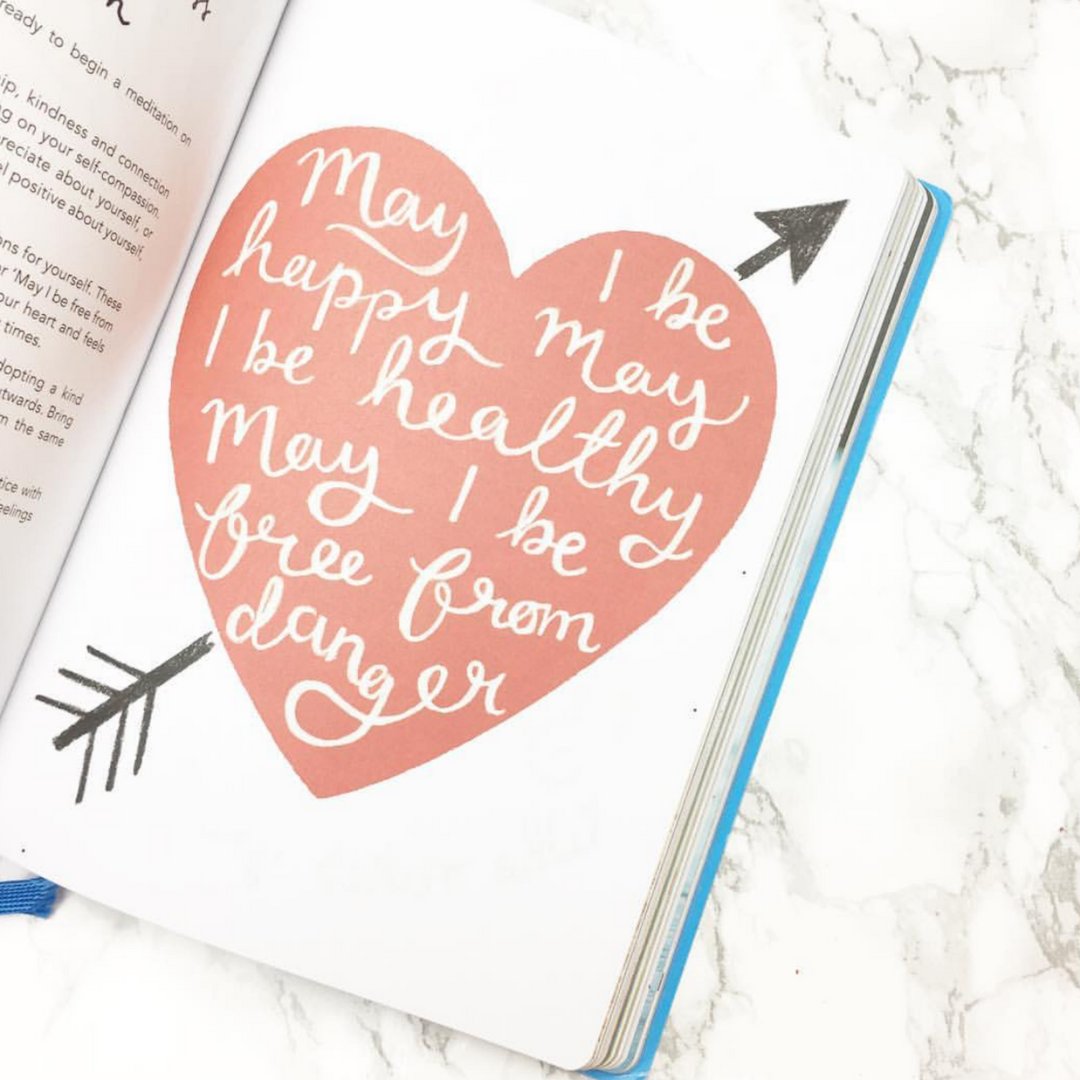 ready to begin a meditation on
ip, kindness and connection
g on your self-compassion.
reciate about yourself, or
l positive about yourself,
ns for yourself. These
r 'May I be free from
our heart and feels
times.
dopting a kind
twards. Bring
m the same
tice with
eelings
May I be
happy may
I be healthy
May I be
free from
danger